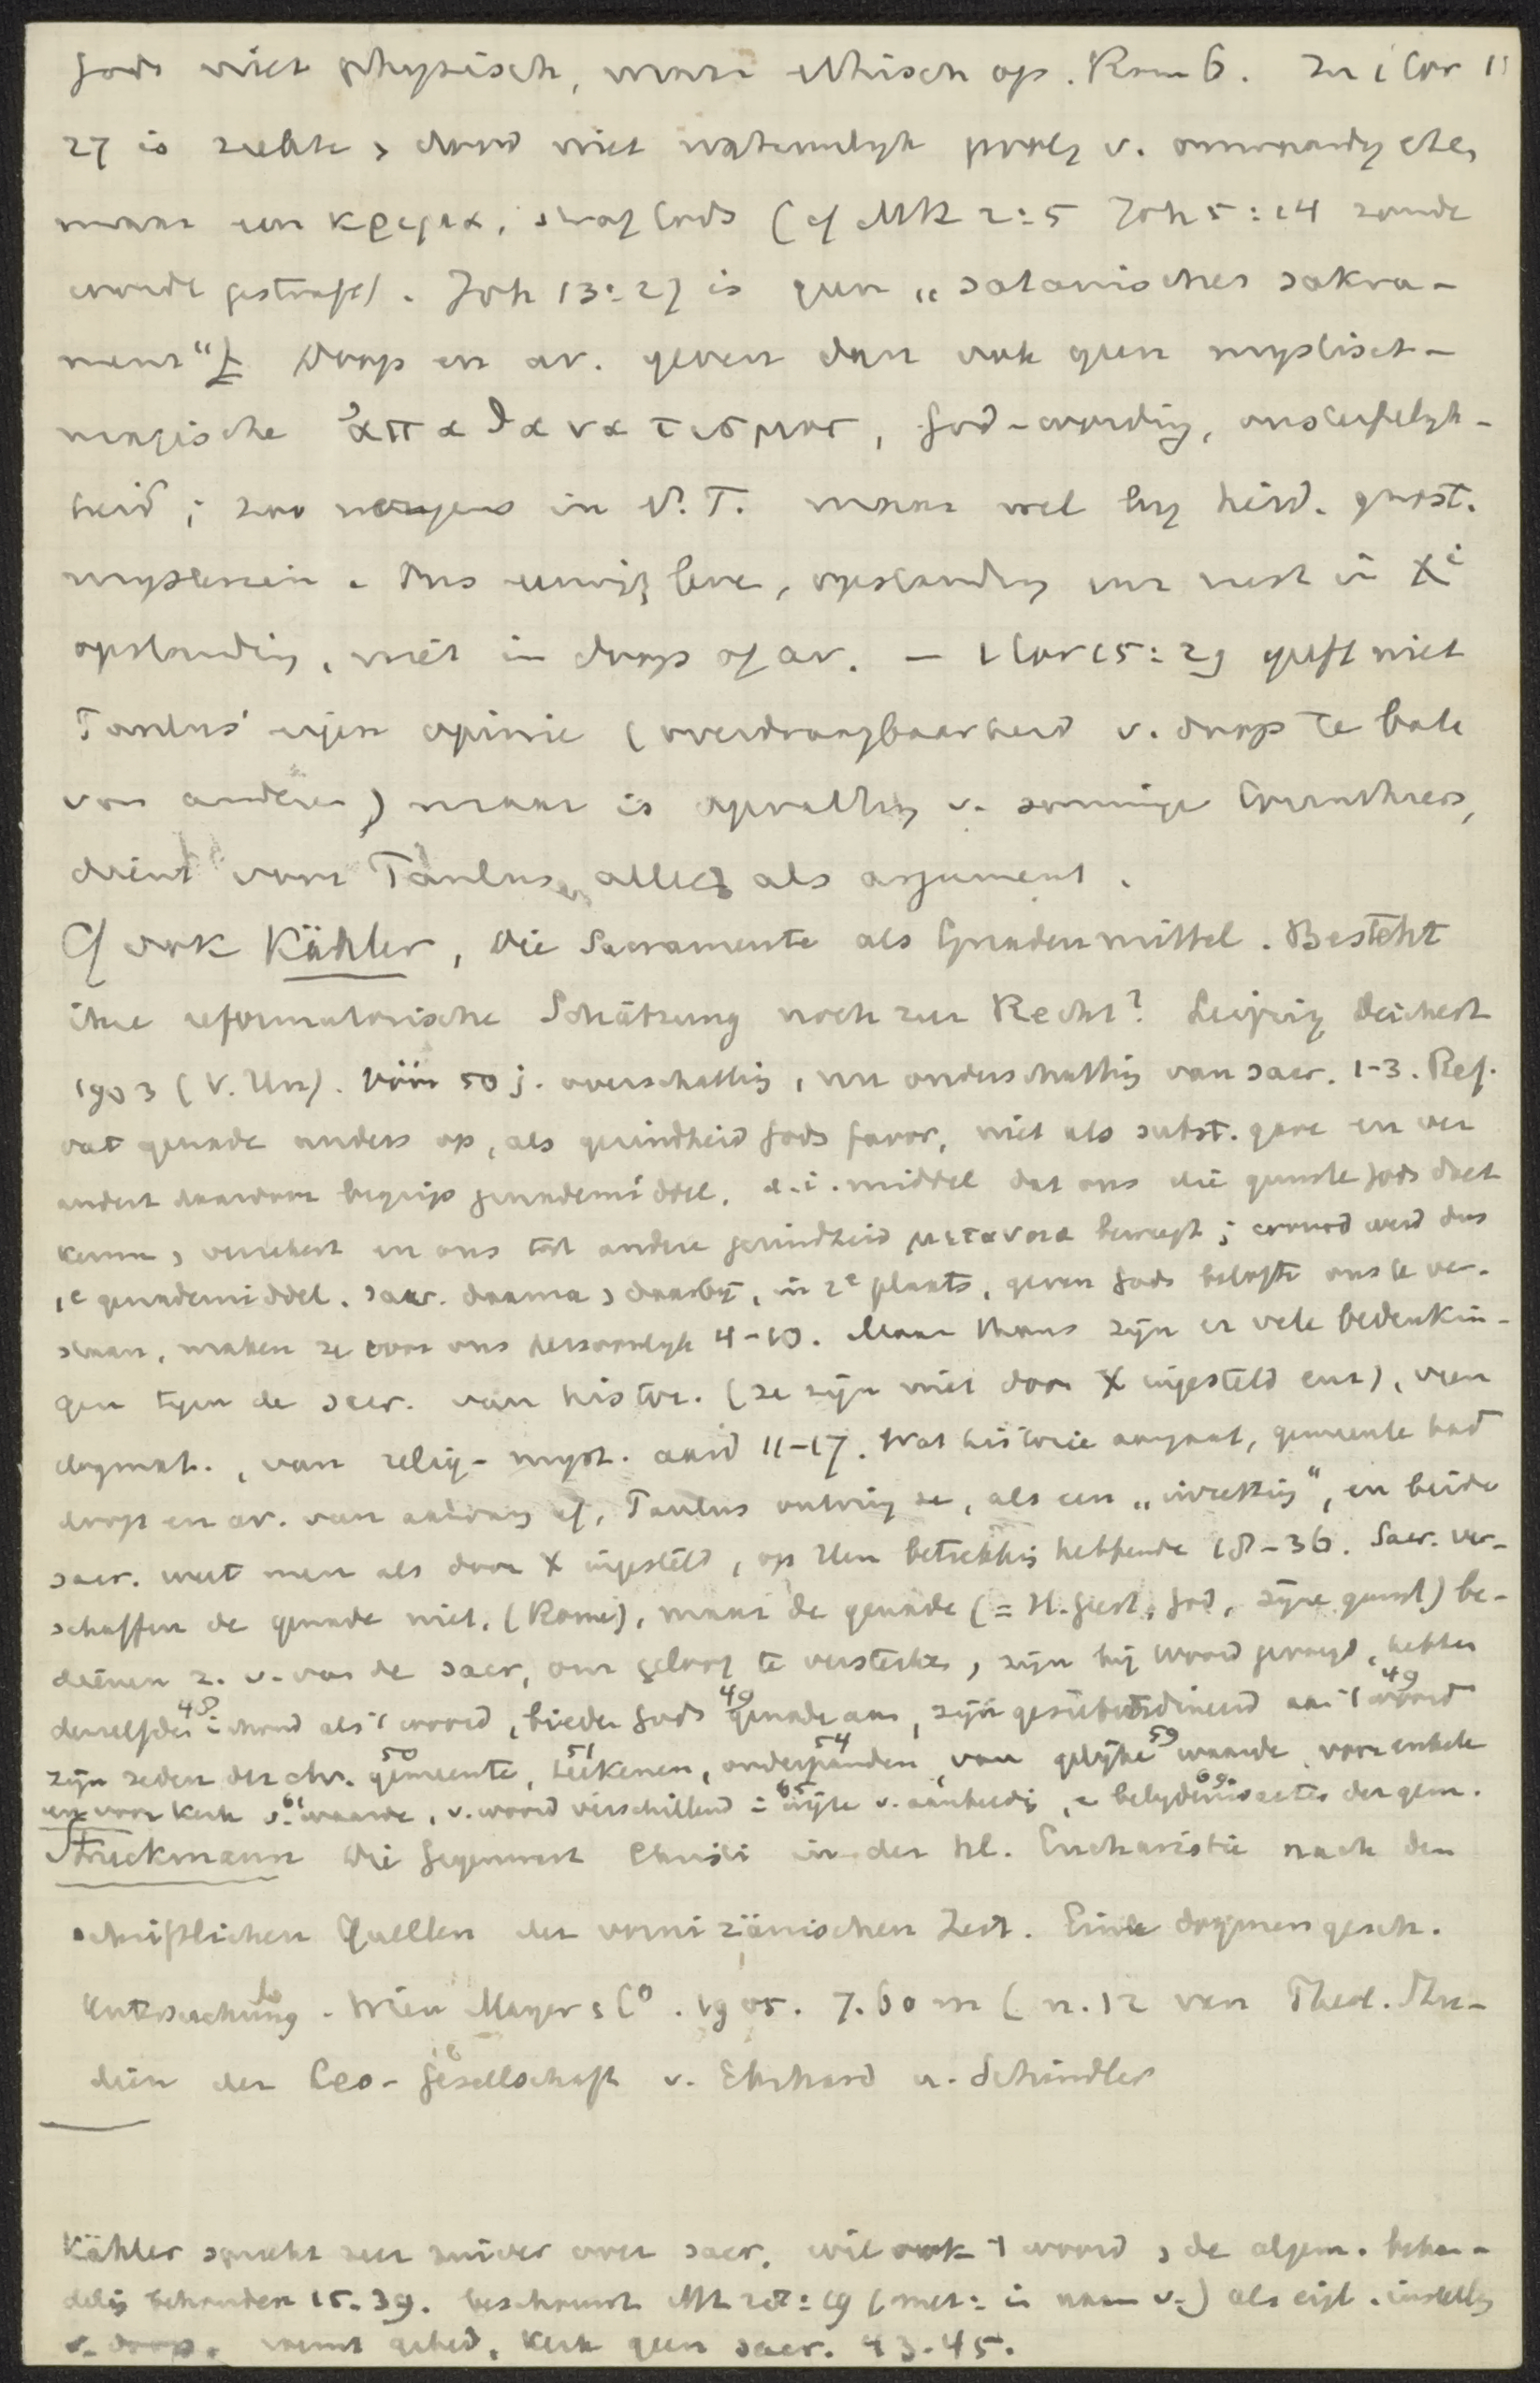 Gods niet physisch, maar ethisch op. Rom 6. In 1 Cor 11
27 is ziekte, dood niet natuurlijk gevolg v. onwaardig eten,
maar een κριμα, straf Gods (cf Mk 2:5 Joh 5:14 zonde
wordt gestraft). Joh 13:27 is geen „satanisches Sakra-
ment“. Doop en av. geven dan ook geen mystisch-
magische ἀπαθανατισμος, God-wording, onsterfelijk-
heid; zoo nergens in N.T. maar wel bij heid. gnost.
mysterien. Ons eeuwig leven, opstanding enz rust in Xi
opstanding, niet in doop of av. — 1 Cor 15:29 geeft niet
Paulus' eigen opinie (overdraagbaarheid v. doop te bate
van anderen) maar is opvatting v. sommige Corinthiers,
dient voor Paulus alleen als argument.
Cf ook Kähler, Die Sacramente als Gnadenmittel. Besteht
ihre reformatorische Schätzung noch zu Recht? Leipzig Deichert
1903 (V. Un). Vóór 50 j. overschatting, nu onderschatting van sacr. 1-3. Ref.
vat genade anders op, als gezindheid Gods favor, niet als subst. gave en ver
andert daardoor begrip genademiddel, d.i. middel dat ons die gunste Gods doet
kennen, verzekert en ons tot andere gezindheid μετανοια beweegt; woord werd dus
1e genademiddel. Sacr. daarna, daarbij, in 2e plaats, geven Gods belofte ons te ver-
staan, maken ze voor ons persoonlijk 4-10. Maar thans zijn er vele bedenkin-
gen tegen de sacr. van histor. (ze zijn niet door X ingesteld enz), van
dogmat., van relig-myst. aard 11-17. Wat historie aangaat, gemeente had
doop en av. van aanvang af, Paulus ontving ze, als een „inzetting“, en beide
sacr. weet men als door X ingesteld, op Hem betrekking hebbende 18-36. Sacr. ver-
schaffen de genade niet, (Rome), maar de genade (= H. Geest, God, zijne gunst) be-
dienen z. v. van de sacr, om geloof te versterken, zijn bij woord gevoegd, hebben
denzelfden inhoud als 't woord 48, bieden Gods genade aan 49, zijn gesubordineerd aan 't woord 49
zijn zeden der chr. gemeente 50, teekenen 51, onderpanden 54, van gelijke waarde 59 voor enkele
en voor kerk v. waarde 61, v. woord verschillend in wijze v. aanbieding 65, belijdenisacten der gem. 69.
Struckmann Die Gegenwart Christi in der hl. Eucharistie nach den
schriftlichen Quellen der vornizänischen Zeit. Eine dogmengesch.
Untersuchung. Wien Mayer & Co. 1905. 7.60 m (n. 12 van Theol. Stu-
dien der Leo-Gesellschaft v. Ehrhard u. Schindler
Kähler spreekt zeer zuiver over sacr. wil ook 't woord, de algem. behan-
deling behouden 15.39. beschouwt Mt 28:19 (met: in naam v.) als eigl. instelling
v. doop. noemt gebed, kerk geen sacr. 43-45.